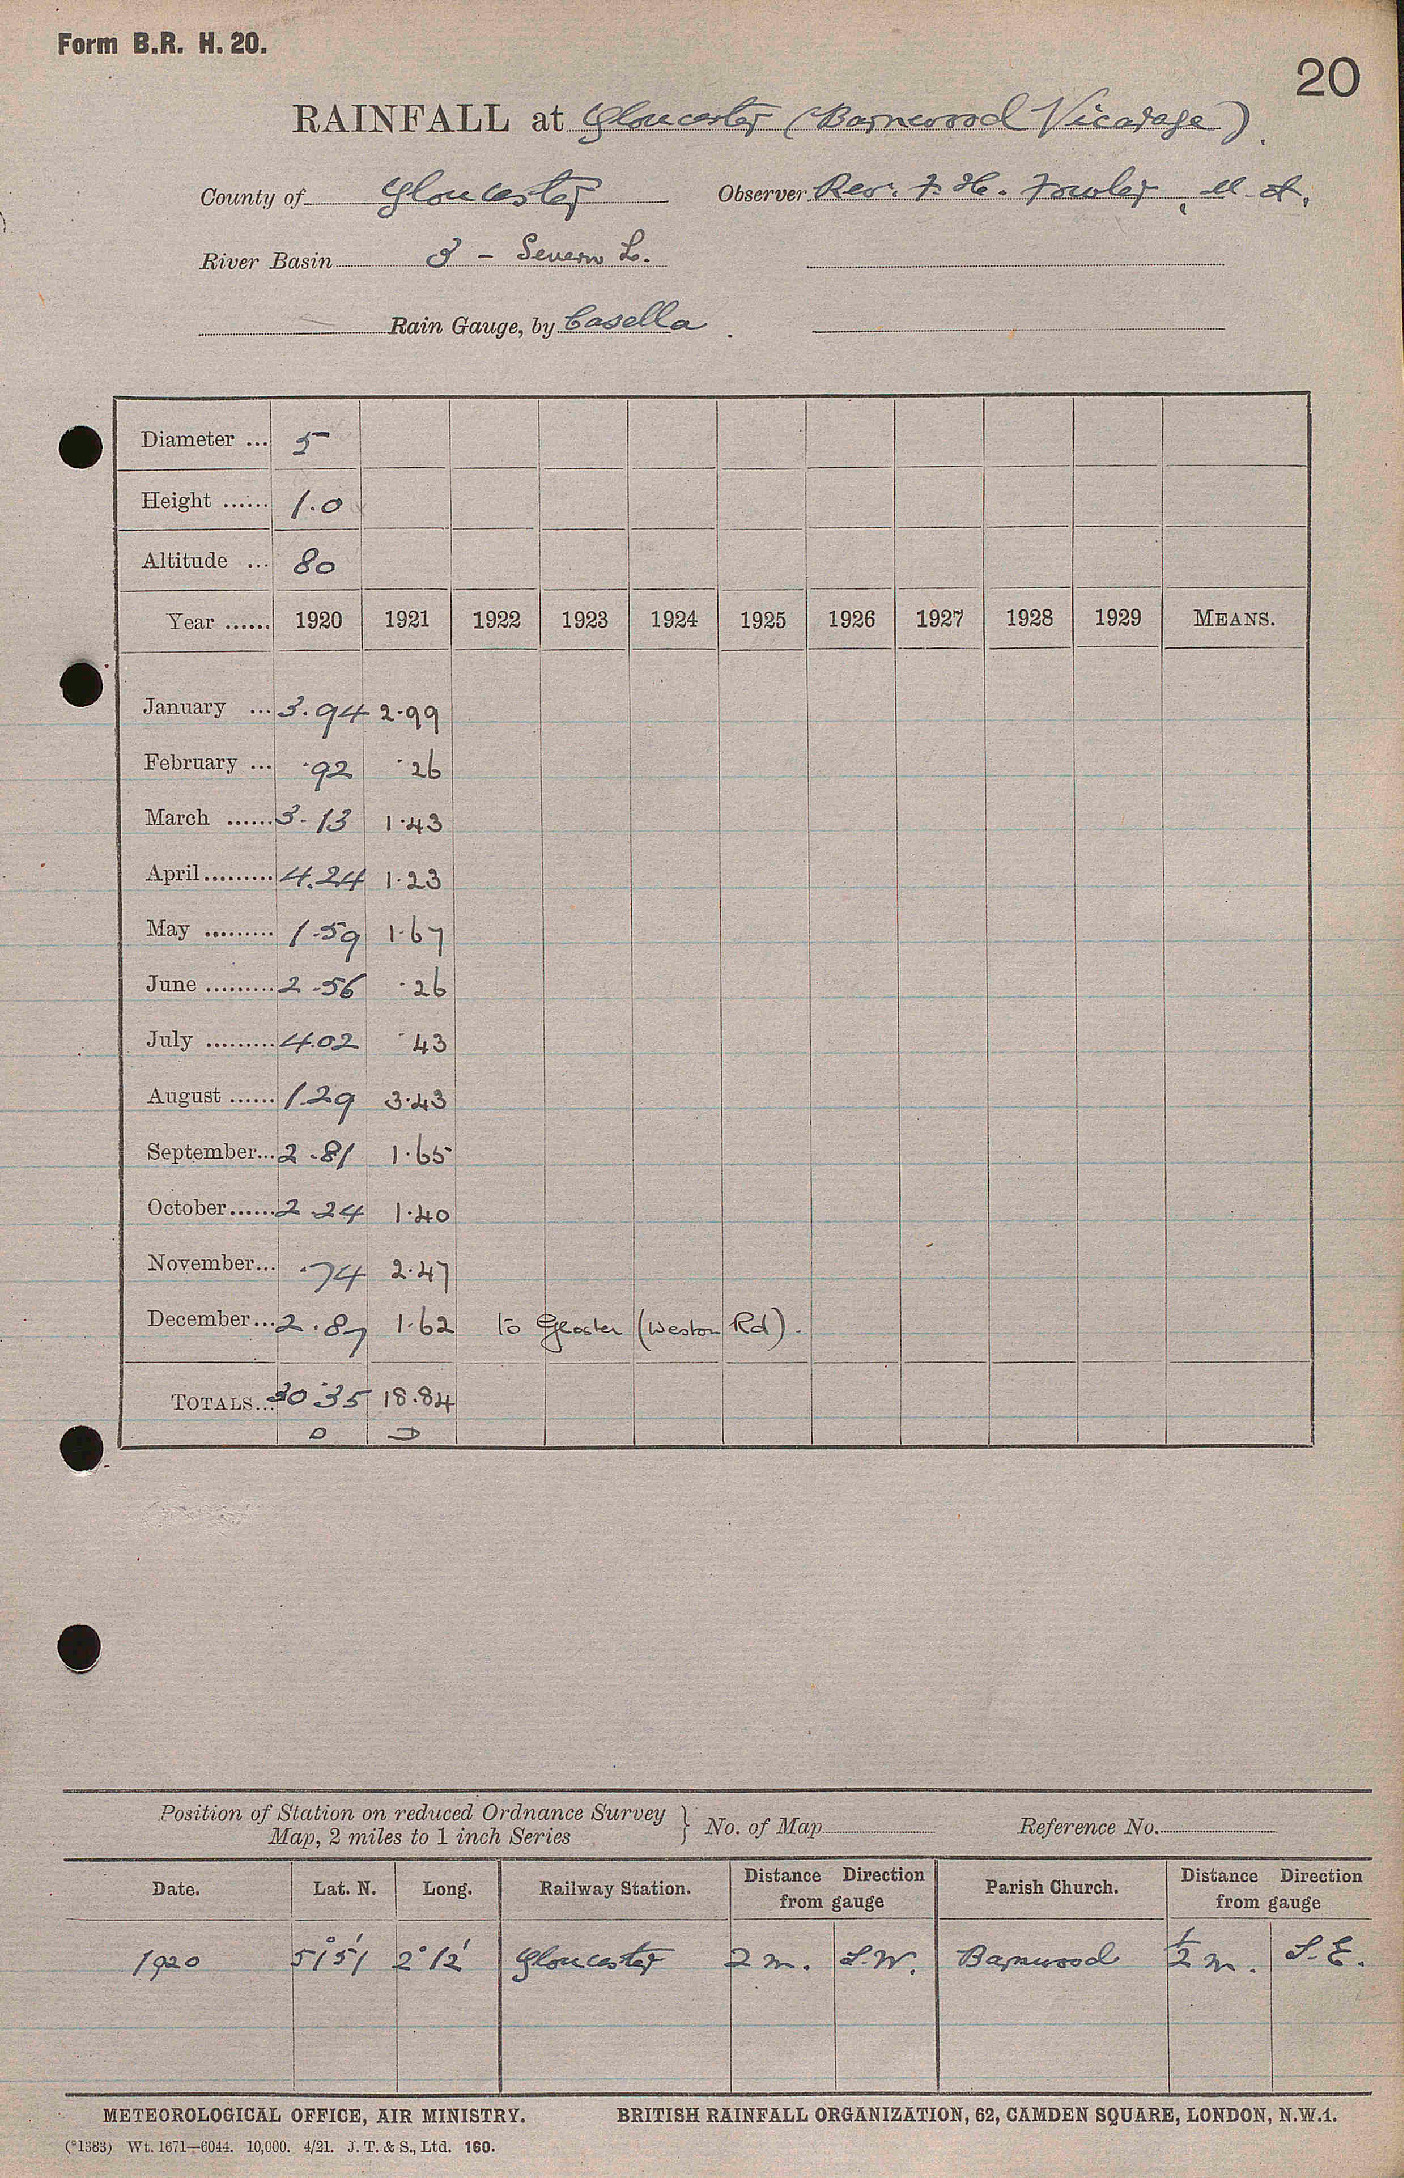 Form B.R. H. 20.
20
RAINFALL at Gloucester (Barnwood Vicarage).
County of Gloucester Observer Rev. F. H. Fowler, M.A.
River Basin 3 - Severn L.
Rain Gauge, by Casella.
Diameter ... 5
Height ...... 1.0
Altitude ... 80
Year ...... 1920 1921 1922 1923 1924 1925 1926 1927 1928 1929 MEANS.
January ... 3.94 2.99
February ... .92 .26
March ...... 3.13 1.43
April ......... 4.24 1.23
May ......... 1.59 1.67
June ......... 2.56 .26
July ......... 4.02 .43
August ...... 1.29 3.43
September... 2.81 1.65
October...... 2.24 1.40
November... .74 2.47
December... 2.87 1.62 to Gloster (Weston Rd).
TOTALS... 30.35 18.84
Position of Station on reduced Ordnance Survey
Map, 2 miles to 1 inch Series } No. of Map Reference No.
Date. Lat. N. Long. Railway Station. Distance Direction from gauge Parish Church. Distance Direction from gauge
1920 51°51' 2°12' Gloucester 2 m. S.W. Barnwood 1/2 m. S.E.
METEOROLOGICAL OFFICE, AIR MINISTRY. BRITISH RAINFALL ORGANIZATION, 62, CAMDEN SQUARE, LONDON, N.W.1.
(*1383) Wt. 1671—6044. 10,000. 4/21. J. T. & S., Ltd. 160.